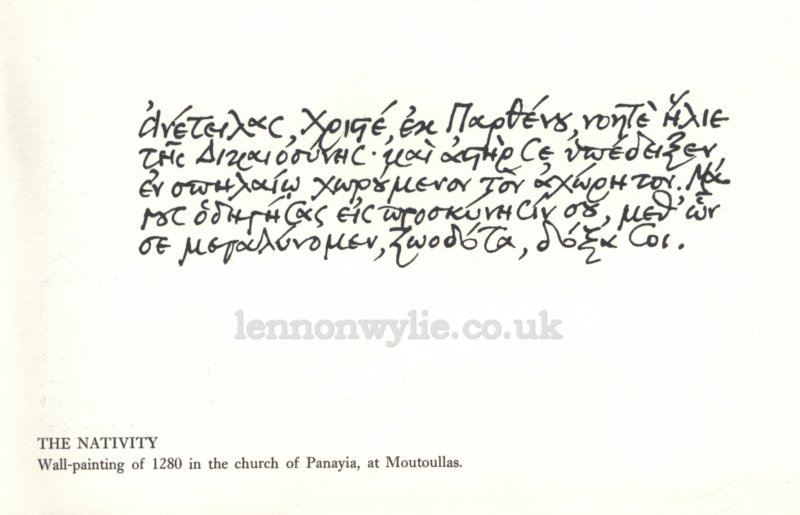 Ἀνέτειλας, Χριστέ, ἐκ Παρθένου, νοητὲ Ἥλιε
τῆς Δικαιοσύνης· καὶ ἀστὴρ Σε ὑπέδειξεν
ἐν σπηλαίῳ χωρούμενον τὸν ἀχώρητον. Μά
γους ὁδηγήσας εἰς προσκύνησίν σου, μεθ' ὧν
σε μεγαλύνομεν, Ζωοδότα, δόξα Σοι.
lennonwylie.co.uk
THE NATIVITY
Wall-painting of 1280 in the church of Panayia, at Moutoullas.